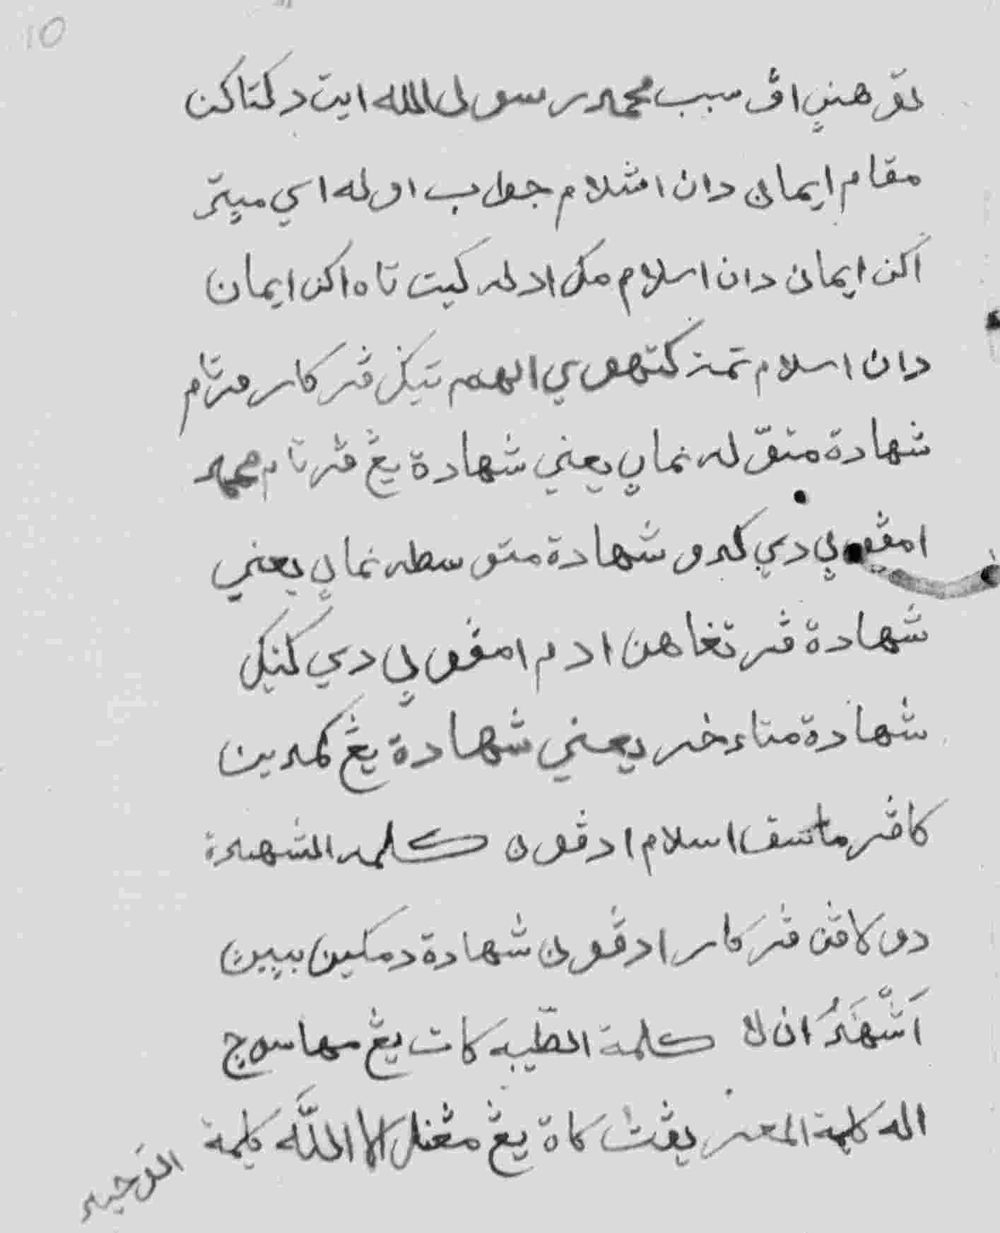 10
نور هنڽ اڤ سبب محمد رسول الله ايت دكتاكن
مقام ايمان دان اشلام جواب اوله اسي ميتر
اكن ايمان دان اسلام مك ادله كيت تاه اكن ايمان
دان اسلام تمة كتهوي الهم تيك ڤركار ڤرتام
شهادة متقوله نماڽ يعني شهادة يڠ ڤرتام محمد
امڤوڽ دي كدو شهادة متوسطه نماڽ يعني
شهادة ڤرتغاهن ادم امڤوڽ دي كتيك
شهادة متاءخر يعني شهادة يڠ كمدين
كافر ماسق اسلام ادڤون كلمه الشهدة
دو كافن ڤركار ادڤون شهادة دمكين بيين
اَشْهَدُ ان لا كلمة الطيبه كات يڠ مها سوچ
اله كلمة يڠ كاة يڠ مڠنل الا الله كلمة
التوحيد